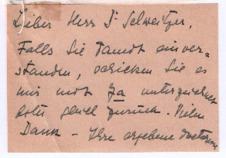 Lieber Herr Dr Schweitzer,
Falls Sie damit einver-
standen, schicken Sie es
mir mit Ja unterzeichnet
zurück. Vielen
Dank – Ihre ergebene